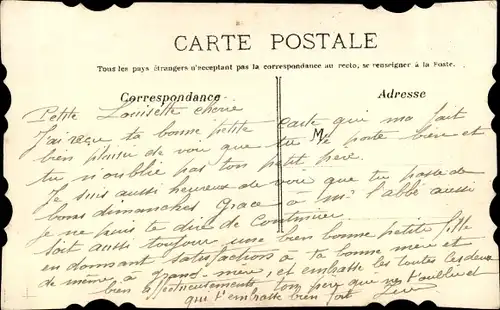 CARTE POSTALE
Tous les pays étrangers n'acceptant pas la correspondance au recto, se renseigner à la Poste.
Correspondance
Adresse
M
Petite Louisette cherie
J'ai reçue ta bonne petite carte qui ma fait
bien plaisir de voir que tu te porte bien et
tu n'oublie pas ton petit pere.
Je suis aussi heureux de voir que tu passe de
bons dimanches Grace a mr l'abbé aussi
Je ne puis te dire de continuer
soit aussi toujour une bien bonne petite fille
en donnant satisfactions a ta bonne mère et
de meme a grand-mère, et embrasse les toutes les deux
bien affectueusements ton pere que ne t'oublie et
qui t'embrasse bien fort